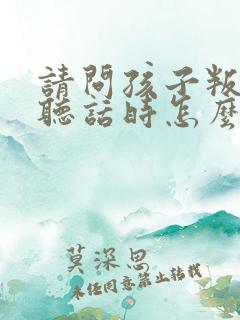 請問孩子叛
聽話時怎麼
莫深思
未经同意禁止转载